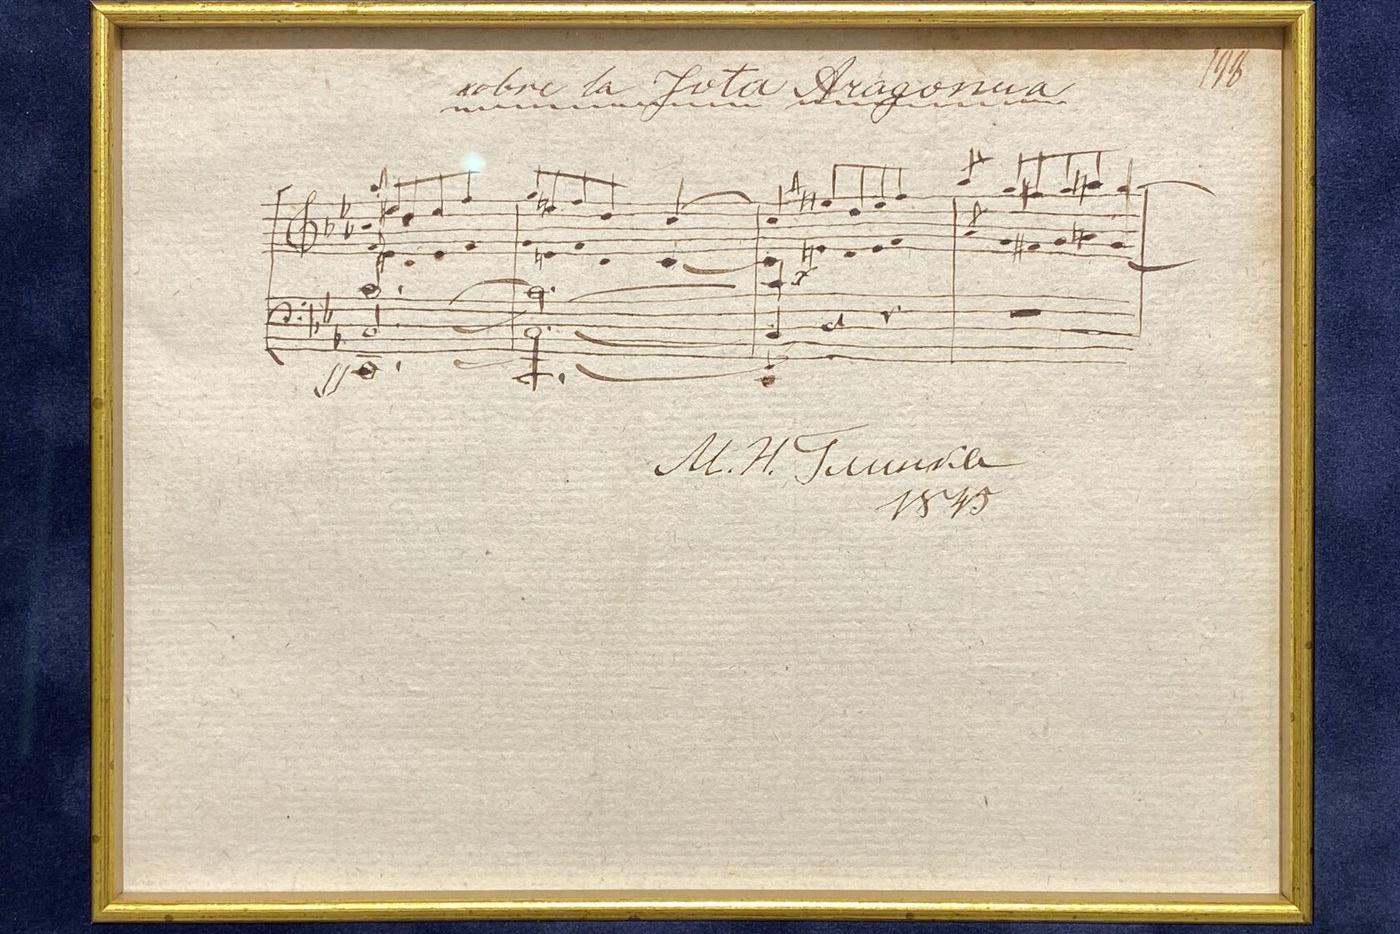 198
sobre la Jota Aragonesa
М. И. Глинка
1845